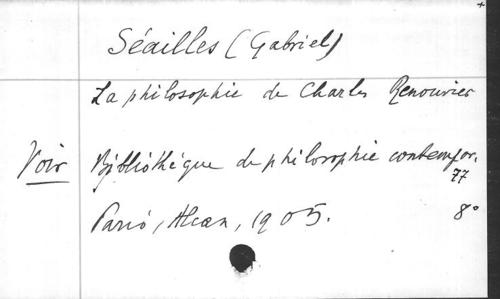 Séailles (Gabriel)
La philosophie de Charles Renouvier
Voir Bibliothèque de philosophie contempor.
77
Paris, Alcan, 1905. 8°